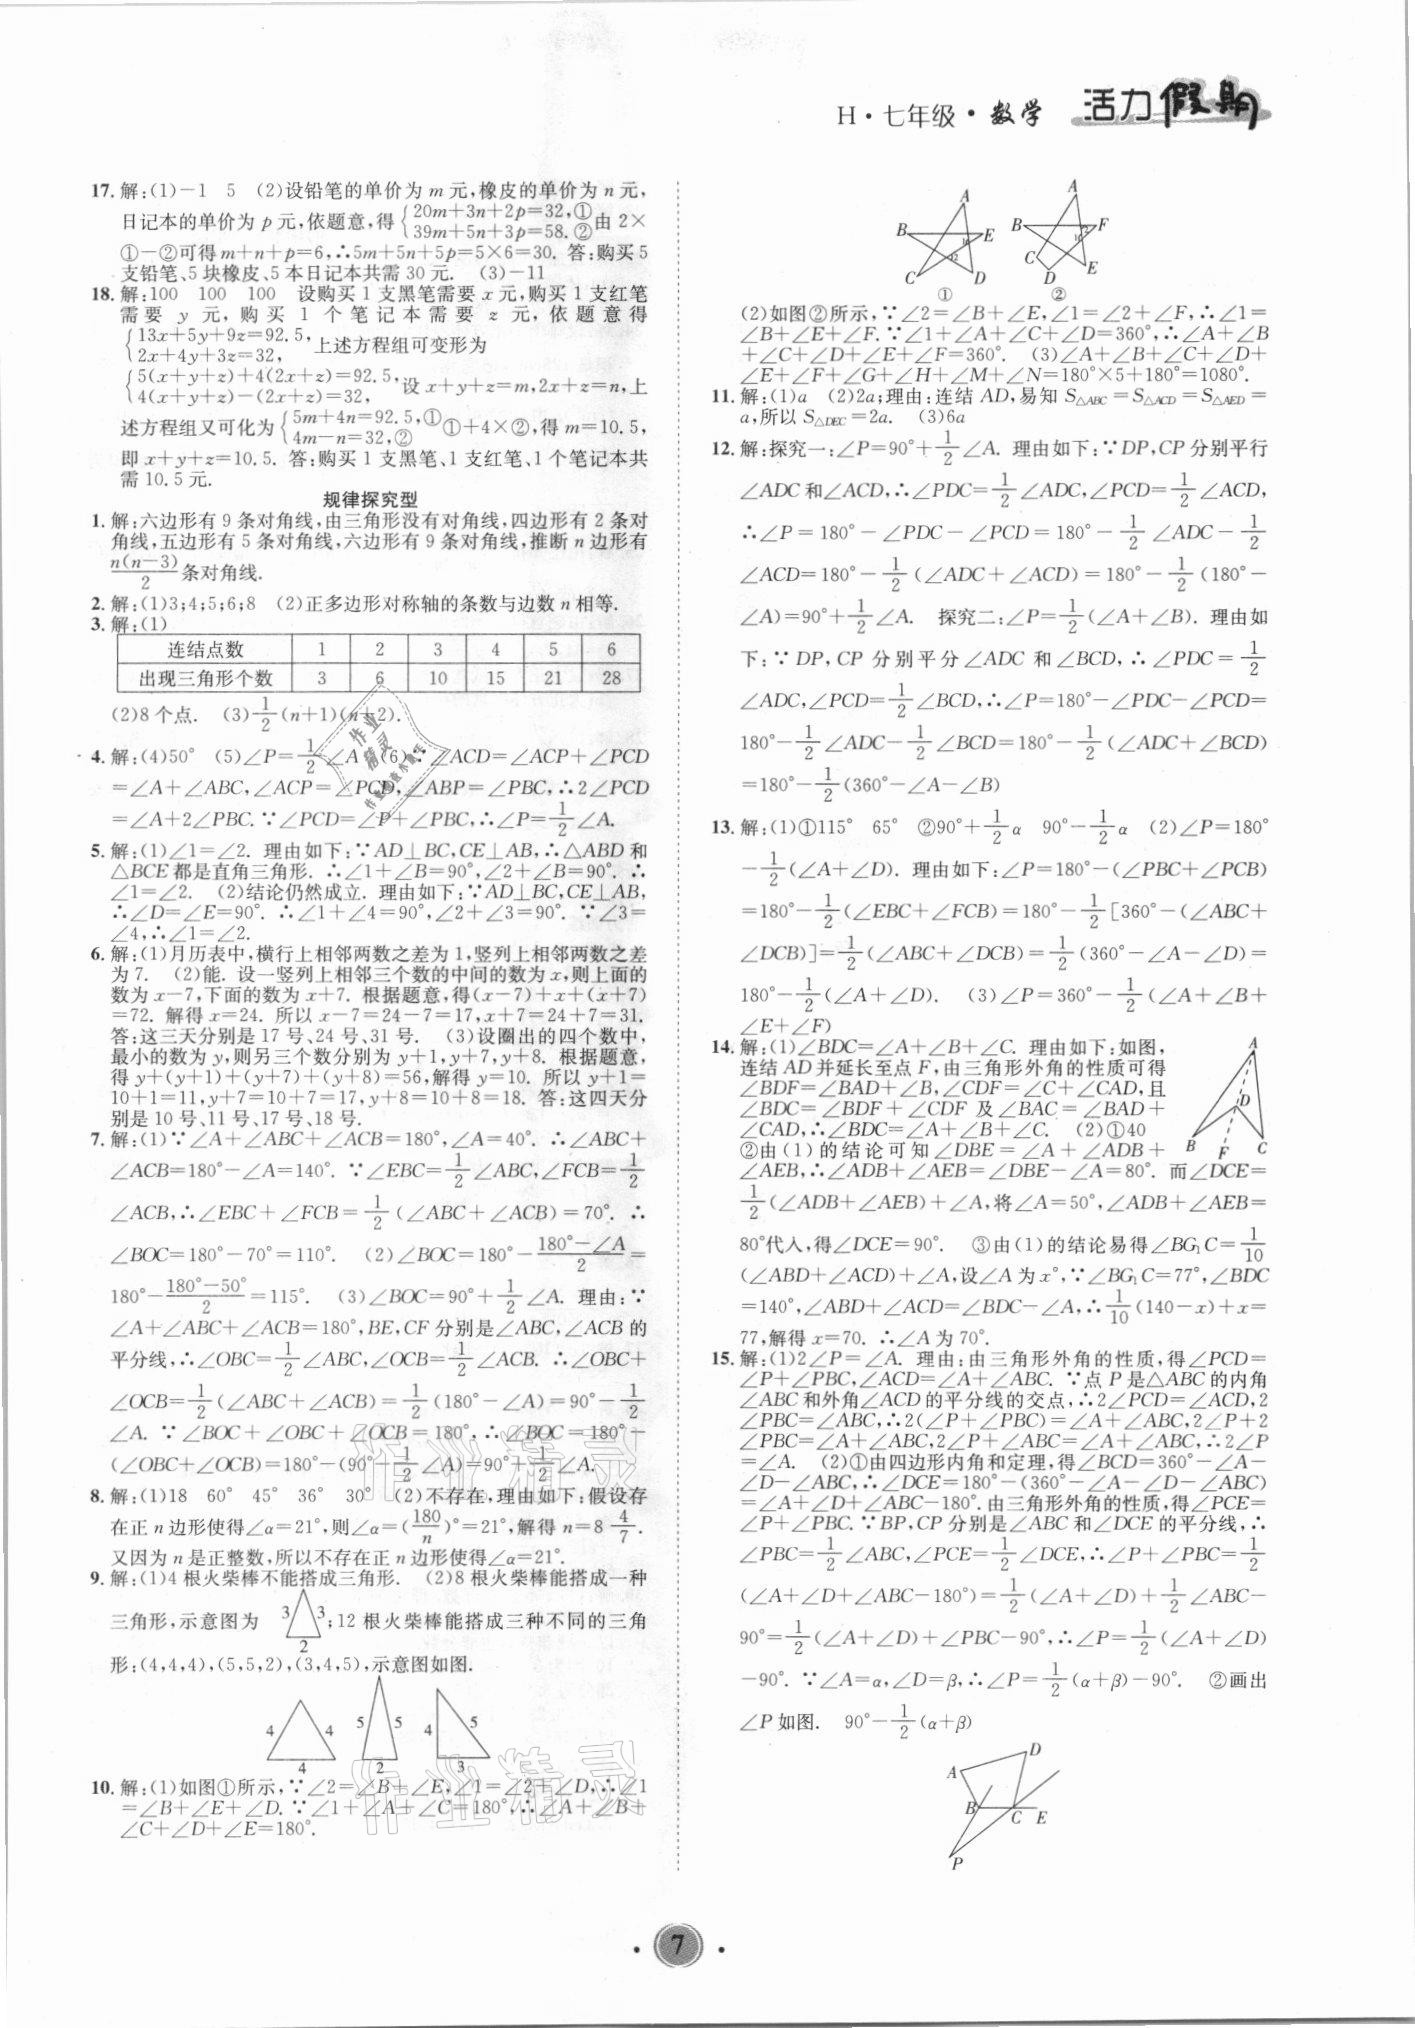 H·七年级·数学 活力假期
17. 解:(1)-1 5 (2)设铅笔的单价为 m 元,橡皮的单价为 n 元,
日记本的单价为 p 元,依题意,得{20m+3n+2p=32,① 39m+5n+3p=58.②由 2×
①-②可得 m+n+p=6,∴5m+5n+5p=5×6=30. 答:购买 5
支铅笔、5 块橡皮、5 本日记本共需 30 元. (3)-11
18. 解:100 100 100 设购买 1 支黑笔需要 x 元,购买 1 支红笔
需要 y 元,购买 1 个笔记本需要 z 元,依题意得
{13x+5y+9z=92.5, 2x+4y+3z=32, 上述方程组可变形为
{5(x+y+z)+4(2x+z)=92.5, 4(x+y+z)-(2x+z)=32, 设 x+y+z=m,2x+z=n,上
述方程组又可化为{5m+4n=92.5,① 4m-n=32,②①+4×②,得 m=10.5,
即 x+y+z=10.5. 答:购买 1 支黑笔、1 支红笔、1 个笔记本共
需 10.5 元.
规律探究型
1. 解:六边形有 9 条对角线,由三角形没有对角线,四边形有 2 条对
角线,五边形有 5 条对角线,六边形有 9 条对角线,推断 n 边形有
n(n-3)/2 条对角线.
2. 解:(1)3;4;5;6;8 (2)正多边形对称轴的条数与边数 n 相等.
3. 解:(1)
连结点数 1 2 3 4 5 6
出现三角形个数 3 6 10 15 21 28
(2)8 个点. (3)1/2(n+1)(n+2).
4. 解:(4)50° (5)∠P=1/2∠A (6)∵∠ACD=∠ACP+∠PCD
=∠A+∠ABC,∠ACP=∠PCD,∠ABP=∠PBC,∴2∠PCD
=∠A+2∠PBC.∵∠PCD=∠P+∠PBC,∴∠P=1/2∠A.
5. 解:(1)∠1=∠2. 理由如下:∵AD⊥BC,CE⊥AB,∴△ABD 和
△BCE 都是直角三角形. ∴∠1+∠B=90°,∠2+∠B=90°. ∴
∠1=∠2. (2)结论仍然成立. 理由如下:∵AD⊥BC,CE⊥AB,
∴∠D=∠E=90°. ∴∠1+∠4=90°,∠2+∠3=90°. ∵∠3=
∠4,∴∠1=∠2.
6. 解:(1)月历表中,横行上相邻两数之差为 1,竖列上相邻两数之差
为 7. (2)能. 设一竖列上相邻三个数的中间的数为 x,则上面的
数为 x-7,下面的数为 x+7. 根据题意,得(x-7)+x+(x+7)
=72. 解得 x=24. 所以 x-7=24-7=17,x+7=24+7=31.
答:这三天分别是 17 号、24 号、31 号. (3)设圈出的四个数中,
最小的数为 y,则另三个数分别为 y+1,y+7,y+8. 根据题意,
得 y+(y+1)+(y+7)+(y+8)=56,解得 y=10. 所以 y+1=
10+1=11,y+7=10+7=17,y+8=10+8=18. 答:这四天分
别是 10 号、11 号、17 号、18 号.
7. 解:(1)∵∠A+∠ABC+∠ACB=180°,∠A=40°. ∴∠ABC+
∠ACB=180°-∠A=140°. ∵∠EBC=1/2∠ABC,∠FCB=1/2
∠ACB,∴∠EBC+∠FCB=1/2(∠ABC+∠ACB)=70°. ∴
∠BOC=180°-70°=110°. (2)∠BOC=180°-(180°-∠A)/2=
180°-(180°-50°)/2=115°. (3)∠BOC=90°+1/2∠A. 理由:∵
∠A+∠ABC+∠ACB=180°,BE,CF 分别是∠ABC,∠ACB 的
平分线,∴∠OBC=1/2∠ABC,∠OCB=1/2∠ACB. ∴∠OBC+
∠OCB=1/2(∠ABC+∠ACB)=1/2(180°-∠A)=90°-1/2
∠A. ∵∠BOC+∠OBC+∠OCB=180°,∴∠BOC=180°-
(∠OBC+∠OCB)=180°-(90°-1/2∠A)=90°+1/2∠A.
8. 解:(1)18 60° 45° 36° 30° (2)不存在,理由如下:假设存
在正 n 边形使得∠α=21°,则∠α=(180/n)°=21°,解得 n=8 4/7.
又因为 n 是正整数,所以不存在正 n 边形使得∠α=21°.
9. 解:(1)4 根火柴棒不能搭成三角形. (2)8 根火柴棒能搭成一种
三角形,示意图为 3 3 2;12 根火柴棒能搭成三种不同的三角
形:(4,4,4),(5,5,2),(3,4,5),示意图如图.
4 4 4 5 5 2 4 5 3
10. 解:(1)如图①所示,∵∠2=∠B+∠E,∠1=∠2+∠D,∴∠1
=∠B+∠E+∠D. ∵∠1+∠A+∠C=180°,∴∠A+∠B+
∠C+∠D+∠E=180°.
A B E C D 1 2 ① A B F C D E 1 2 ②
(2)如图②所示,∵∠2=∠B+∠E,∠1=∠2+∠F,∴∠1=
∠B+∠E+∠F.∵∠1+∠A+∠C+∠D=360°,∴∠A+∠B
+∠C+∠D+∠E+∠F=360°. (3)∠A+∠B+∠C+∠D+
∠E+∠F+∠G+∠H+∠M+∠N=180°×5+180°=1080°.
11. 解:(1)a (2)2a;理由:连结 AD,易知 S△ABC=S△ACD=S△AED=
a,所以 S△DEC=2a. (3)6a
12. 解:探究一:∠P=90°+1/2∠A. 理由如下:∵DP,CP 分别平行
∠ADC 和∠ACD,∴∠PDC=1/2∠ADC,∠PCD=1/2∠ACD,
∴∠P=180°-∠PDC-∠PCD=180°-1/2∠ADC-1/2
∠ACD=180°-1/2(∠ADC+∠ACD)=180°-1/2(180°-
∠A)=90°+1/2∠A. 探究二:∠P=1/2(∠A+∠B). 理由如
下:∵DP,CP 分别平分∠ADC 和∠BCD,∴∠PDC=1/2
∠ADC,∠PCD=1/2∠BCD,∴∠P=180°-∠PDC-∠PCD=
180°-1/2∠ADC-1/2∠BCD=180°-1/2(∠ADC+∠BCD)
=180°-1/2(360°-∠A-∠B)
13. 解:(1)①115° 65° ②90°+1/2α 90°-1/2α (2)∠P=180°
-1/2(∠A+∠D). 理由如下:∠P=180°-(∠PBC+∠PCB)
=180°-1/2(∠EBC+∠FCB)=180°-1/2[360°-(∠ABC+
∠DCB)]=1/2(∠ABC+∠DCB)=1/2(360°-∠A-∠D)=
180°-1/2(∠A+∠D). (3)∠P=360°-1/2(∠A+∠B+
∠E+∠F)
14. 解:(1)∠BDC=∠A+∠B+∠C. 理由如下:如图,
连结 AD 并延长至点 F,由三角形外角的性质可得
∠BDF=∠BAD+∠B,∠CDF=∠C+∠CAD,且
∠BDC=∠BDF+∠CDF 及∠BAC=∠BAD+
∠CAD,∴∠BDC=∠A+∠B+∠C. (2)①40
②由(1)的结论可知∠DBE=∠A+∠ADB+
∠AEB,∴∠ADB+∠AEB=∠DBE-∠A=80°. 而∠DCE=
1/2(∠ADB+∠AEB)+∠A,将∠A=50°,∠ADB+∠AEB=
80°代入,得∠DCE=90°. ③由(1)的结论易得∠BG₁C=1/10
(∠ABD+∠ACD)+∠A,设∠A 为 x°,∵∠BG₁C=77°,∠BDC
=140°,∠ABD+∠ACD=∠BDC-∠A,∴1/10(140-x)+x=
77,解得 x=70. ∴∠A 为 70°.
A D B F C
15. 解:(1)2∠P=∠A. 理由:由三角形外角的性质,得∠PCD=
∠P+∠PBC,∠ACD=∠A+∠ABC. ∵点 P 是△ABC 的内角
∠ABC 和外角∠ACD 的平分线的交点,∴2∠PCD=∠ACD,2
∠PBC=∠ABC,∴2(∠P+∠PBC)=∠A+∠ABC,2∠P+2
∠PBC=∠A+∠ABC,2∠P+∠ABC=∠A+∠ABC,∴2∠P
=∠A. (2)①由四边形内角和定理,得∠BCD=360°-∠A-
∠D-∠ABC,∴∠DCE=180°-(360°-∠A-∠D-∠ABC)
=∠A+∠D+∠ABC-180°.由三角形外角的性质,得∠PCE=
∠P+∠PBC.∵BP,CP 分别是∠ABC 和∠DCE 的平分线,∴
∠PBC=1/2∠ABC,∠PCE=1/2∠DCE,∴∠P+∠PBC=1/2
(∠A+∠D+∠ABC-180°)=1/2(∠A+∠D)+1/2∠ABC-
90°=1/2(∠A+∠D)+∠PBC-90°,∴∠P=1/2(∠A+∠D)
-90°. ∵∠A=α,∠D=β,∴∠P=1/2(α+β)-90°. ②画出
∠P 如图. 90°-1/2(α+β)
A D B C E P
7
作业精灵